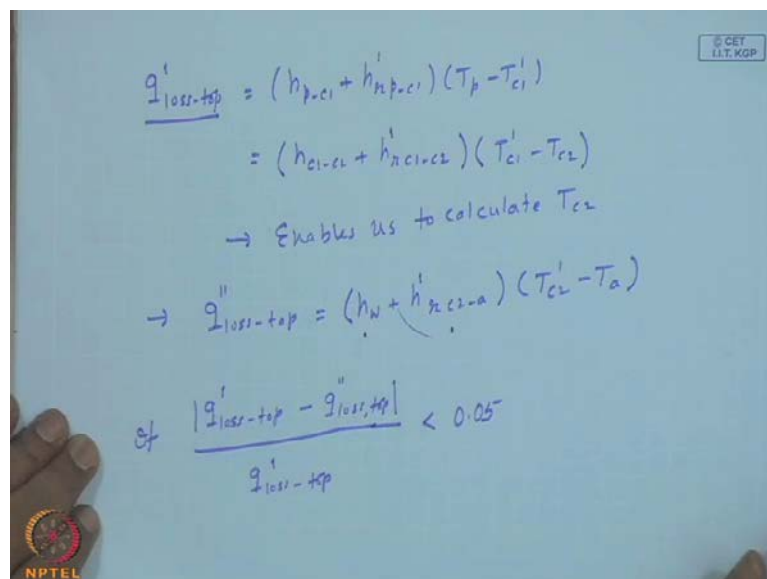 © CET
I.I.T. KGP
q'loss-top = (hp-c1 + h'rp-c1) (Tp - T'c1)
= (hc1-c2 + h'rc1-c2) (T'c1 - Tc2)
→ Enables us to calculate Tc2
→ q''loss-top = (hw + h'rc2-a) (T'c2 - Ta)
If |q'loss-top - q''loss,top| / q'loss-top < 0.05
NPTEL